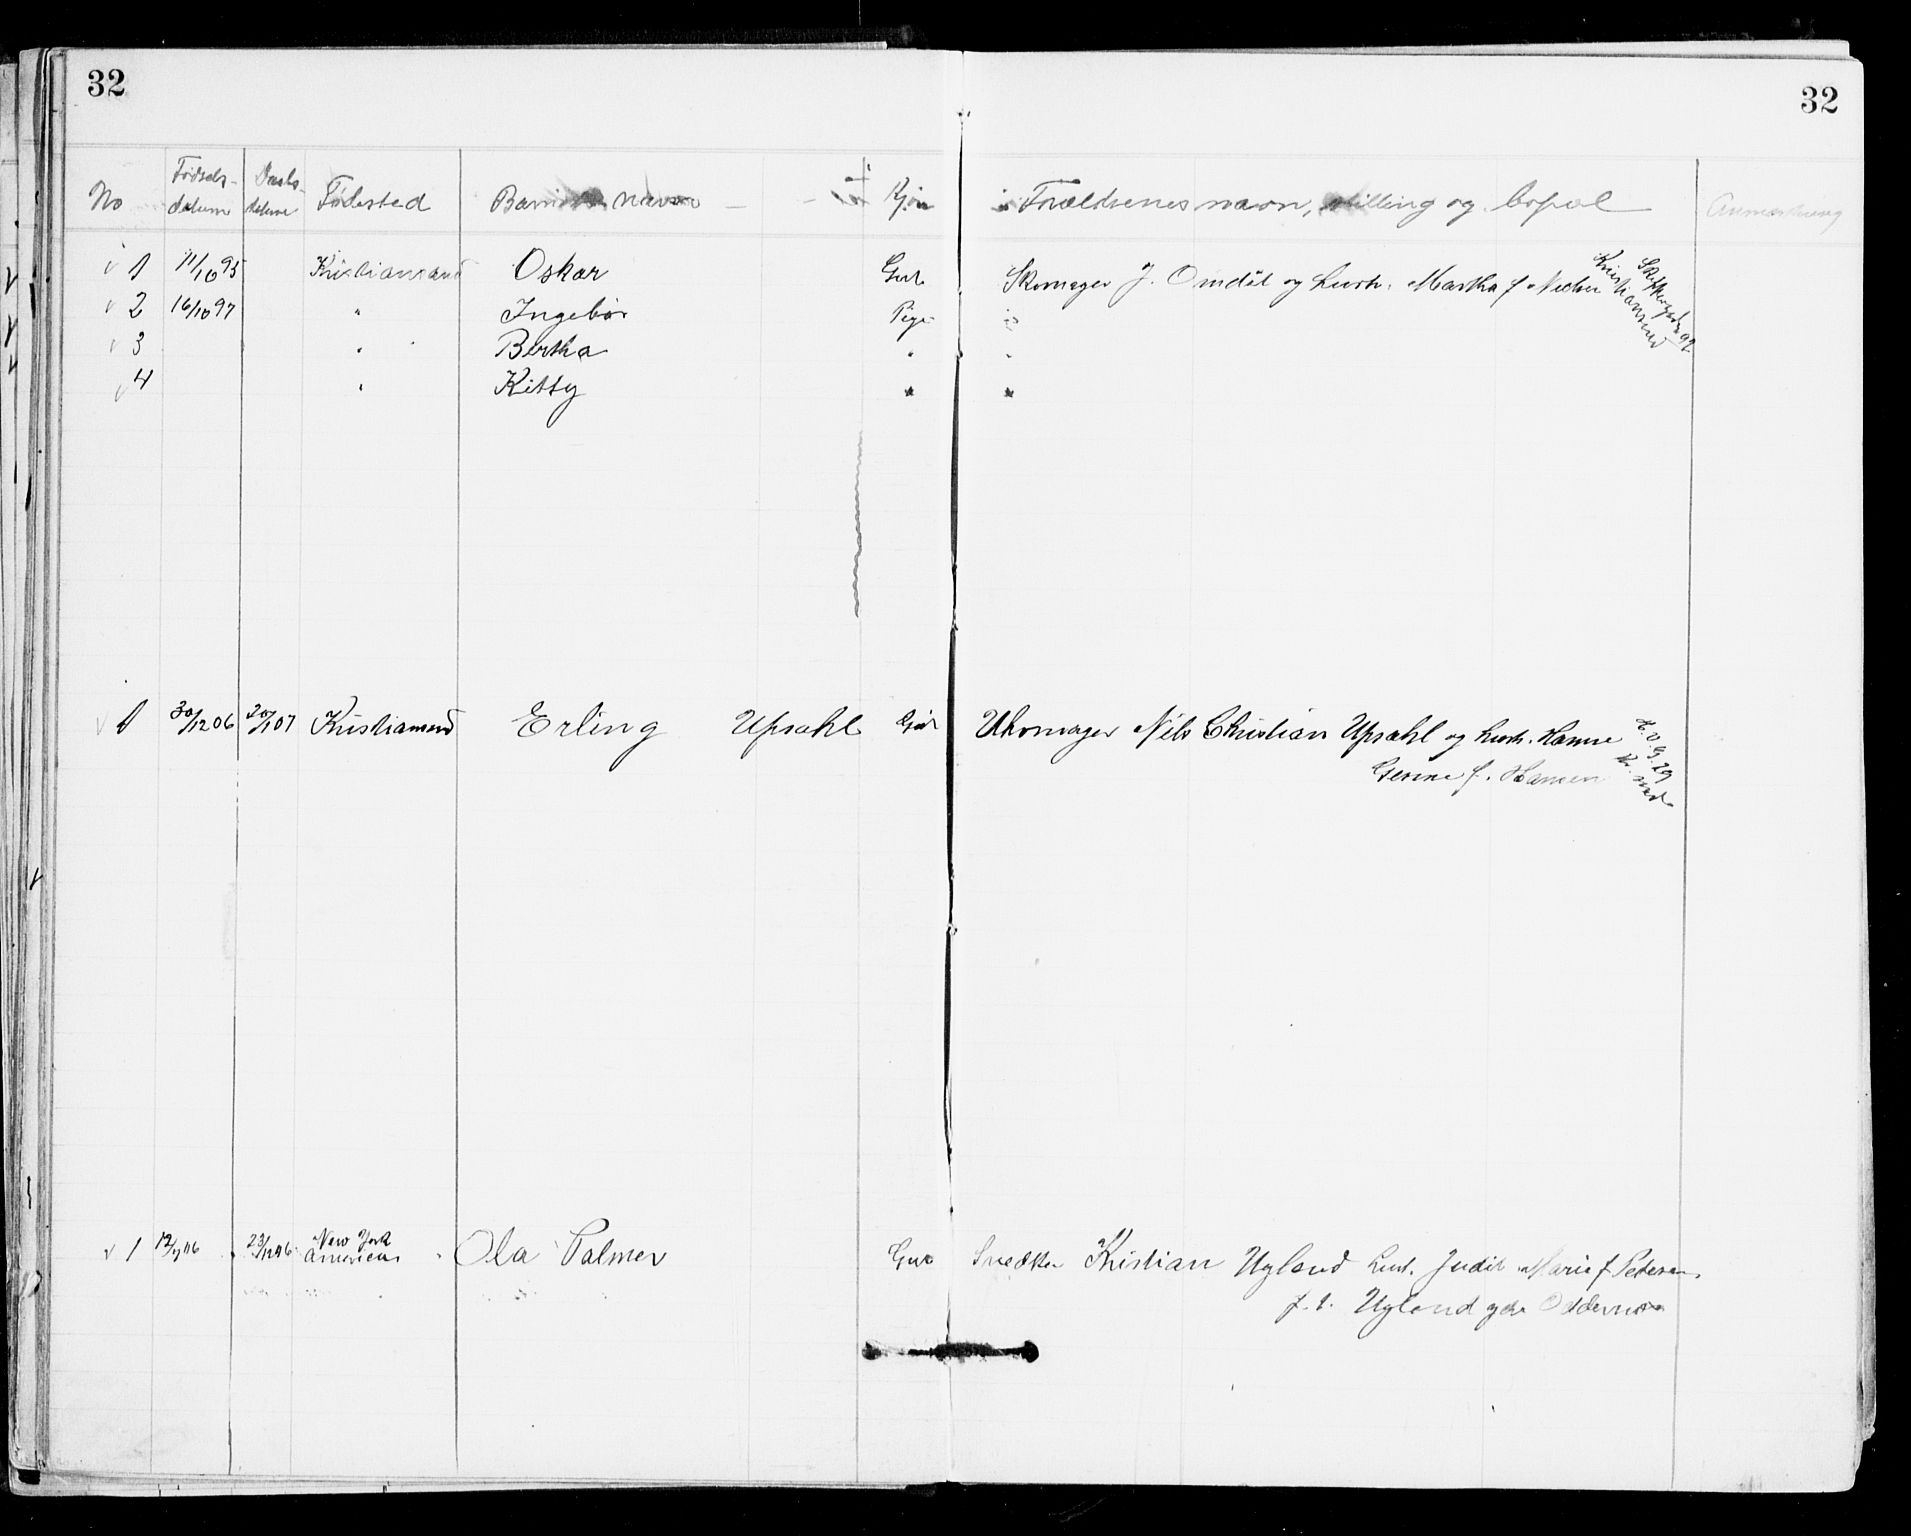 32 32
No Fødsels- datum Daabs- datum Fødested Barnets navn Kjøn Forældrenes navn, stilling og bopæl Anmærkning
1 11/10 95 Kristiansand Oskar Gut Skomager J. Omdal og hustr. Martha f
Kristiansand
2 16/10 97 " Ingebor Pige "
3 " Bertha " "
4 " Kitty " "
1 30/12 06 20/1 07 Kristiansand Erling Upsahl Gut Uhrmager Nils Christian Upsahl og hustr. Hanne
Gesine f. Hansen
1 New York 23/12 06 Ola Palmer Gut Snedker Kristian Ugland hust. Judit Marie f Petersen
America
f. t. Ugland Oddernes